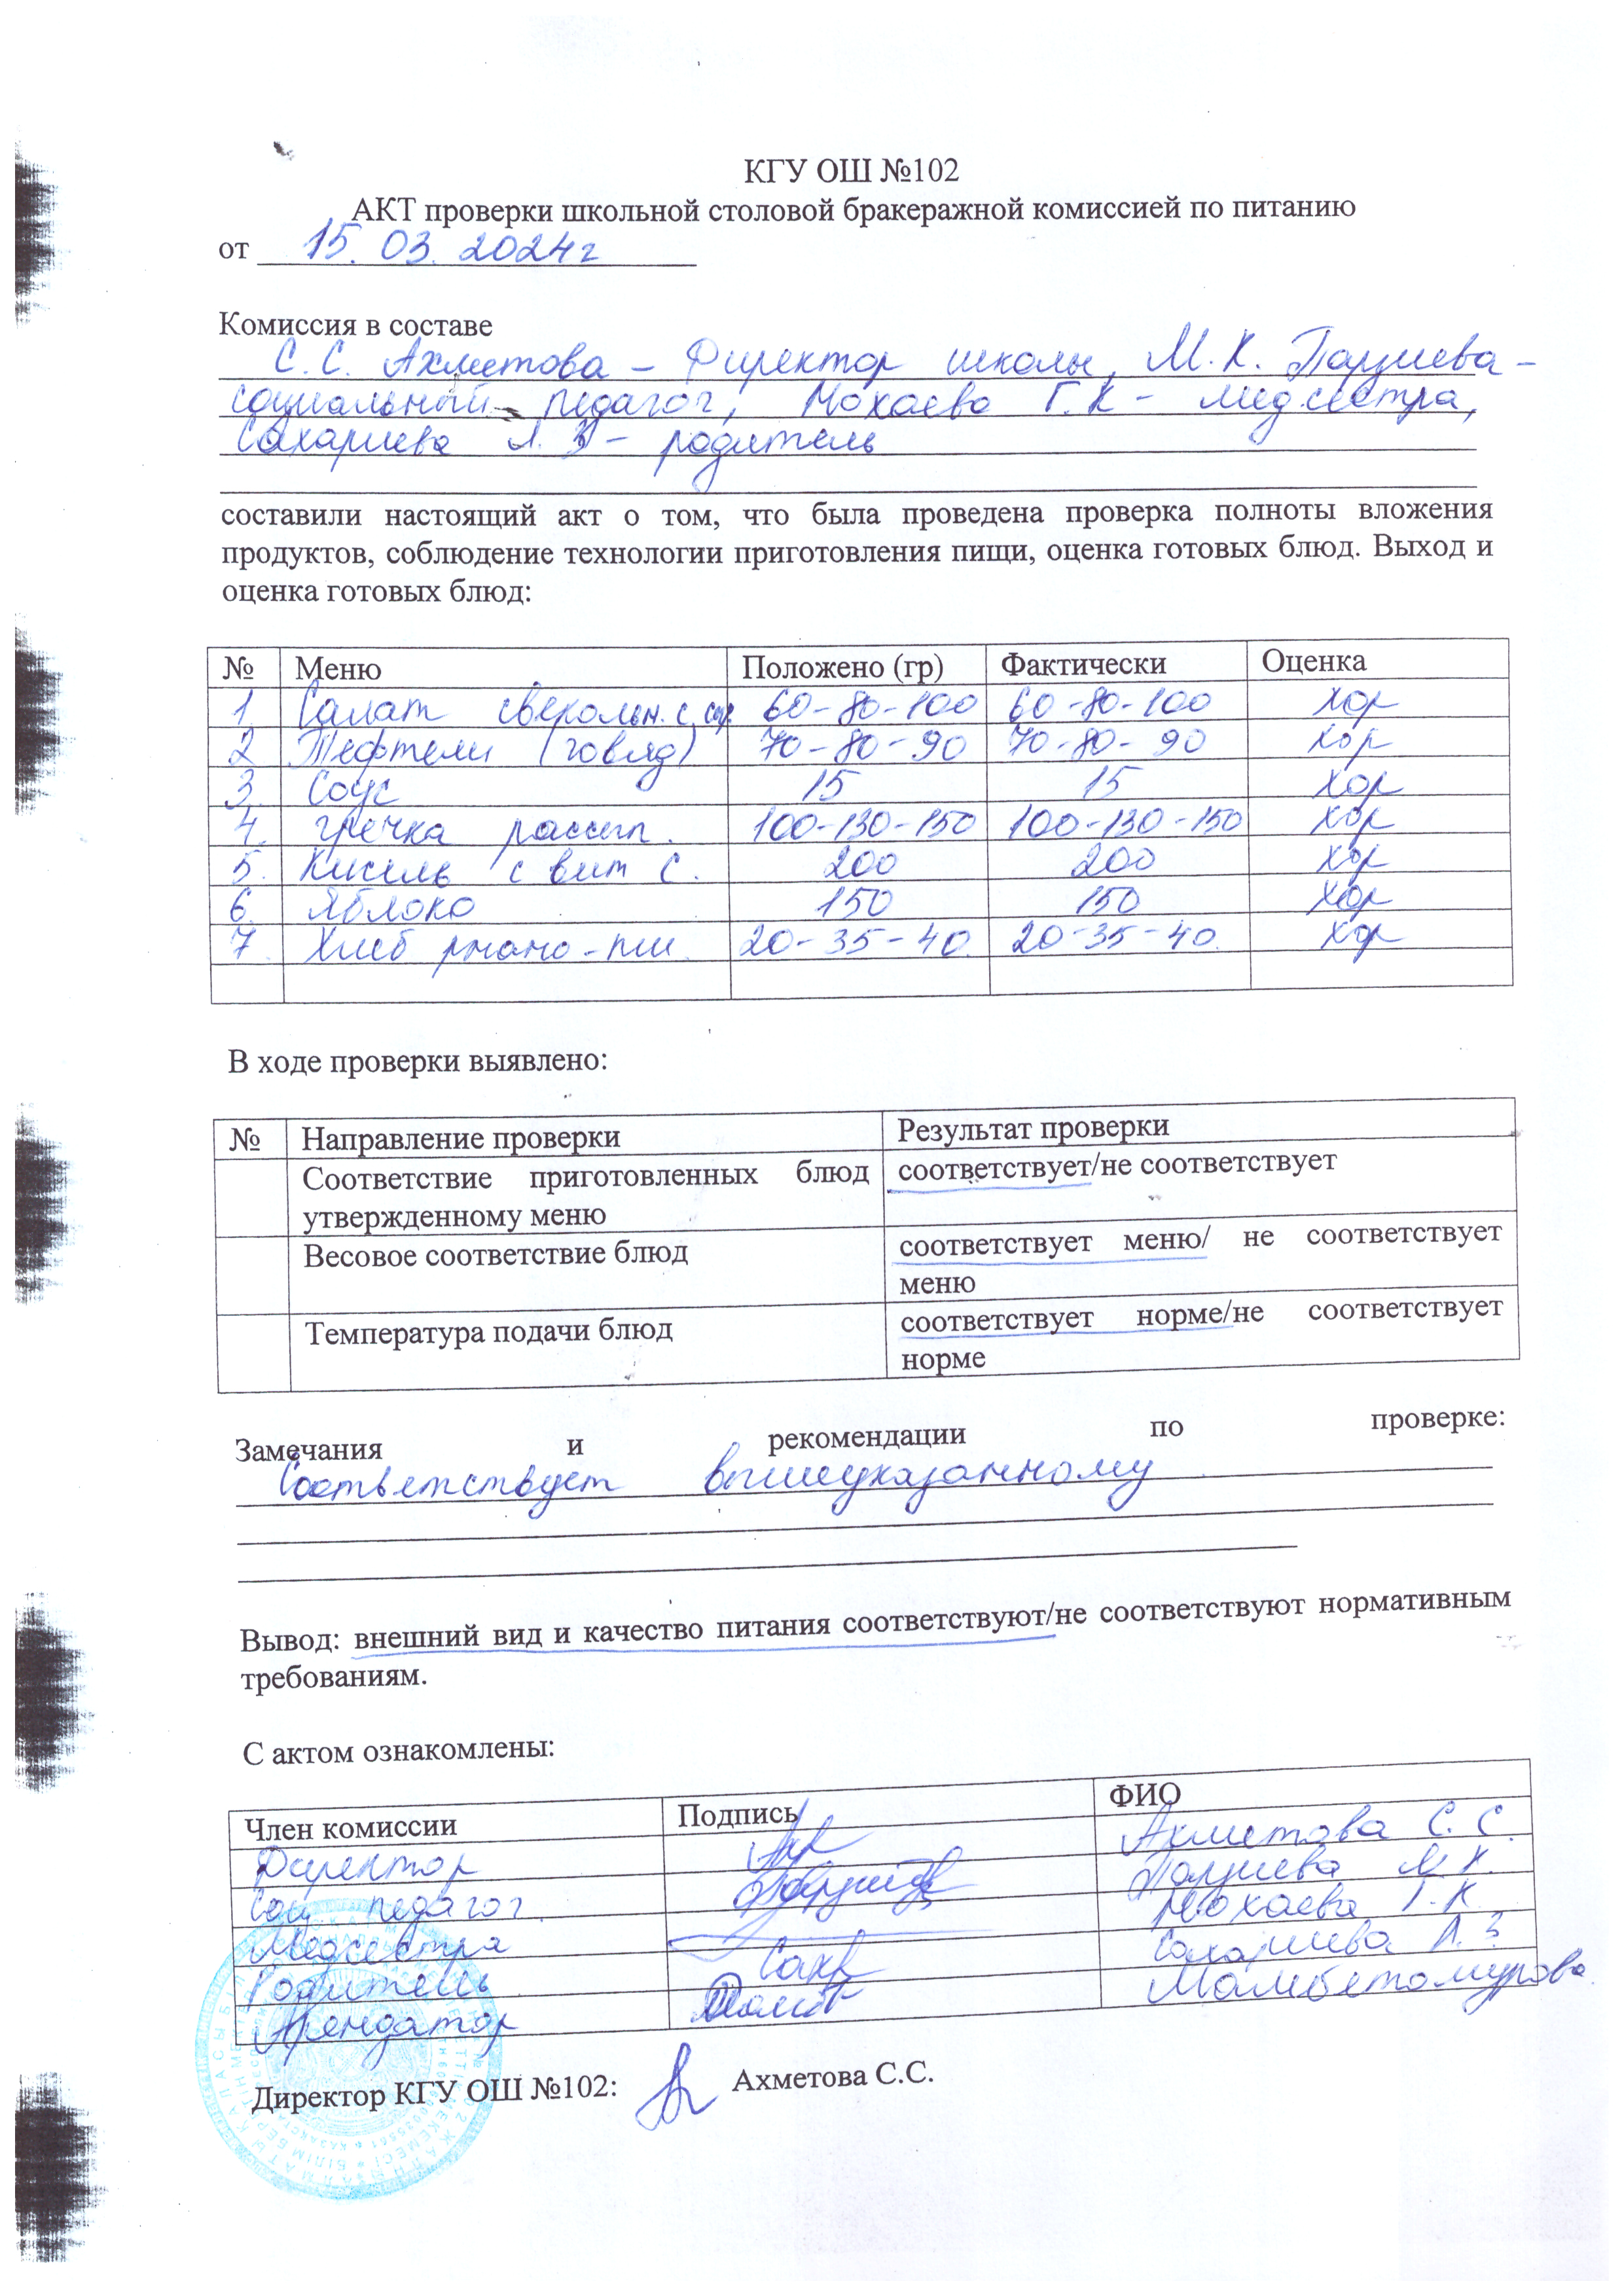 КГУ ОШ №102
АКТ проверки школьной столовой бракеражной комиссией по питанию
от 15. 03. 2024 г
Комиссия в составе
С. С. Ахметова – Директор школы, М. К. Парушева –
социальный педагог, Мохаева Г.К – медсестра,
Сахариева Л. З – родитель
составили настоящий акт о том, что была проведена проверка полноты вложения
продуктов, соблюдение технологии приготовления пищи, оценка готовых блюд. Выход и
оценка готовых блюд:
№ Меню Положено (гр) Фактически Оценка
1 Салат свекольн. с сыр 60-80-100 60-80-100 хор
2 Тефтели (говяд) 70-80-90 70-80-90 хор
3. Соус 15 15 хор
4. гречка рассып. 100-130-150 100-130-150 хор
5. Кисель с вит С. 200 200 хор
6. Яблоко 150 150 хор
7. Хлеб ржано-пш. 20-35-40. 20-35-40. хор
В ходе проверки выявлено:
№ Направление проверки Результат проверки
Соответствие приготовленных блюд соответствует/не соответствует
утвержденному меню
Весовое соответствие блюд соответствует меню/ не соответствует
меню
Температура подачи блюд соответствует норме/не соответствует
норме
Замечания и рекомендации по проверке:
Соответствует вышеуказанному
Вывод: внешний вид и качество питания соответствуют/не соответствуют нормативным
требованиям.
С актом ознакомлены:
Член комиссии Подпись ФИО
Директор Ахметова С. С.
Соц педагог. Парушева М. К.
Медсестра Мохаева Г. К
Родитель Сахариева Л. З
Арендатор Мамбетомурова
Директор КГУ ОШ №102: Ахметова С.С.